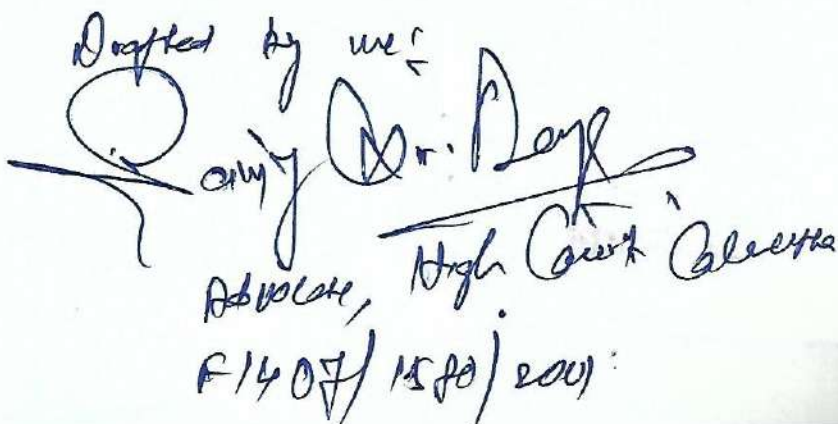 Drafted by me:
Kr. Dey
Advocate, High Court Calcutta
F/1407/1580/2001